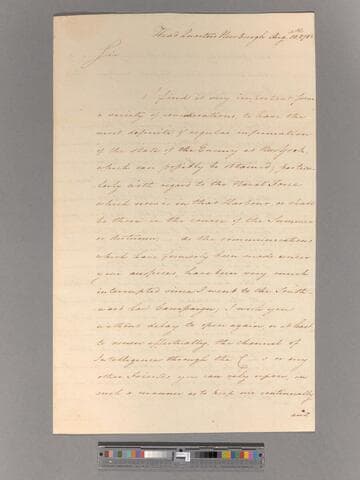 Head Quarters Newburgh Aug. 10th 1782
Sir
I find it very important from
a variety of considerations, to have the
most definite & regular information
of the state of the Enemy at New York,
which can possibly be obtained; particu-
larly with regard to the Naval Force
which now is in that Harbour, or shall
be there in the course of the Summer
or Autumn; As the communications
which have formerly been made under
your auspices, have been very much
interrupted since I went to the South-
ward last Campaign; I wish you
without delay to open again or at least
to renew effectually the channel of
Intelligence through the C—s or any
other Friends you can rely upon, in
such a manner as to keep me continually
and